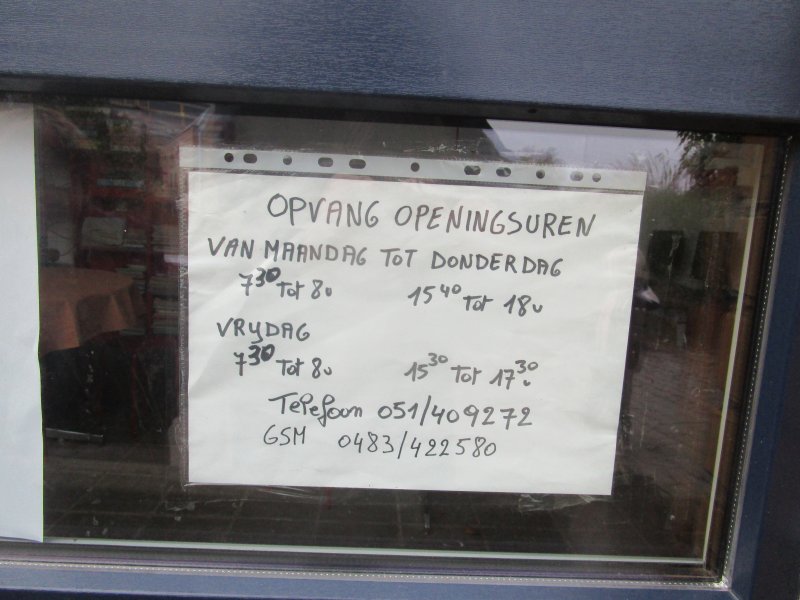 OPVANG OPENINGSUREN
VAN MAANDAG TOT DONDERDAG
7³⁰ Tot 8u 15⁴⁰ Tot 18u
VRYDAG
7³⁰ Tot 8u 15³⁰ Tot 17³⁰u
Telefoon 051/409272
GSM 0483/422580